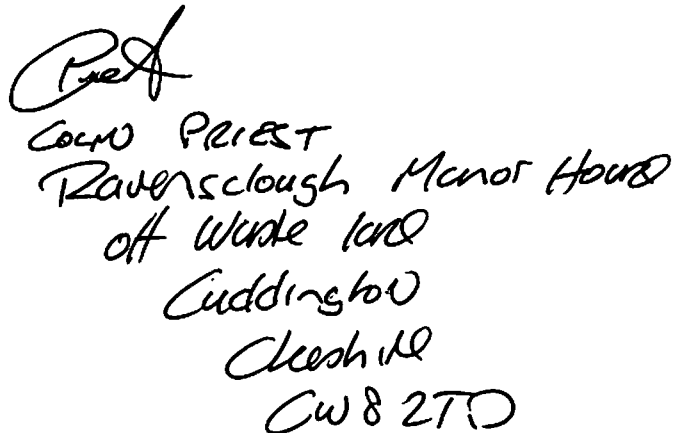 COLIN PRIEST
Ravensclough Manor House
off Waste lane
Cuddington
Cheshire
CW8 2TD